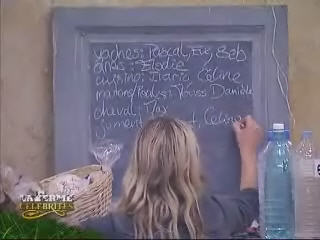 vaches: Pascal, Eve, Seb
ânes: Elodie
cuisine: Ilario, Céline
moutons/Poules: Youss Danièle
cheval: Max
jument: t, Céline
LA FERME
CELEBRITES